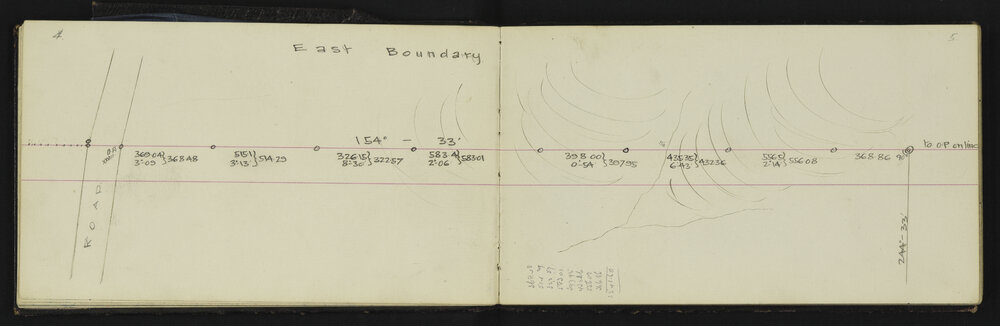 4.
East Boundary
5.
154° - 33'
369.04 } 368.48
3°.09
515.1 } 514.29
3°.13
326.15 } 322.57
8°.30
583.4 } 583.01
2°.06
398.00 } 397.95
0°.54
435.35 } 432.36
6°.43
556.5 } 556.08
2°.14
368.86
To OP on line
ROAD
244° - 33'